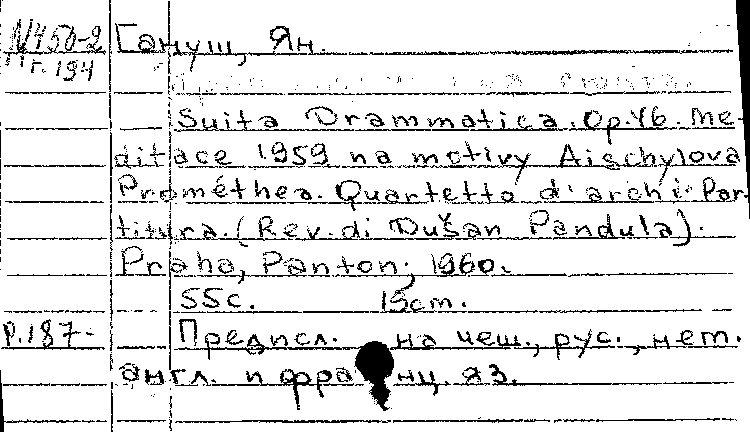 N450-2 Гануш, Ян.
г. 194
Suita Drammatica. Op. 46. Me-
ditace 1959 na motivy Aischylova
Prométhea. Quartetto d'archi. Par-
titura. (Rev. di Dušan Pandula).
Praha, Panton, 1960.
55с. 15cm.
Р.187- Предисл. на чеш., рус., нем.
англ. и франц. яз.